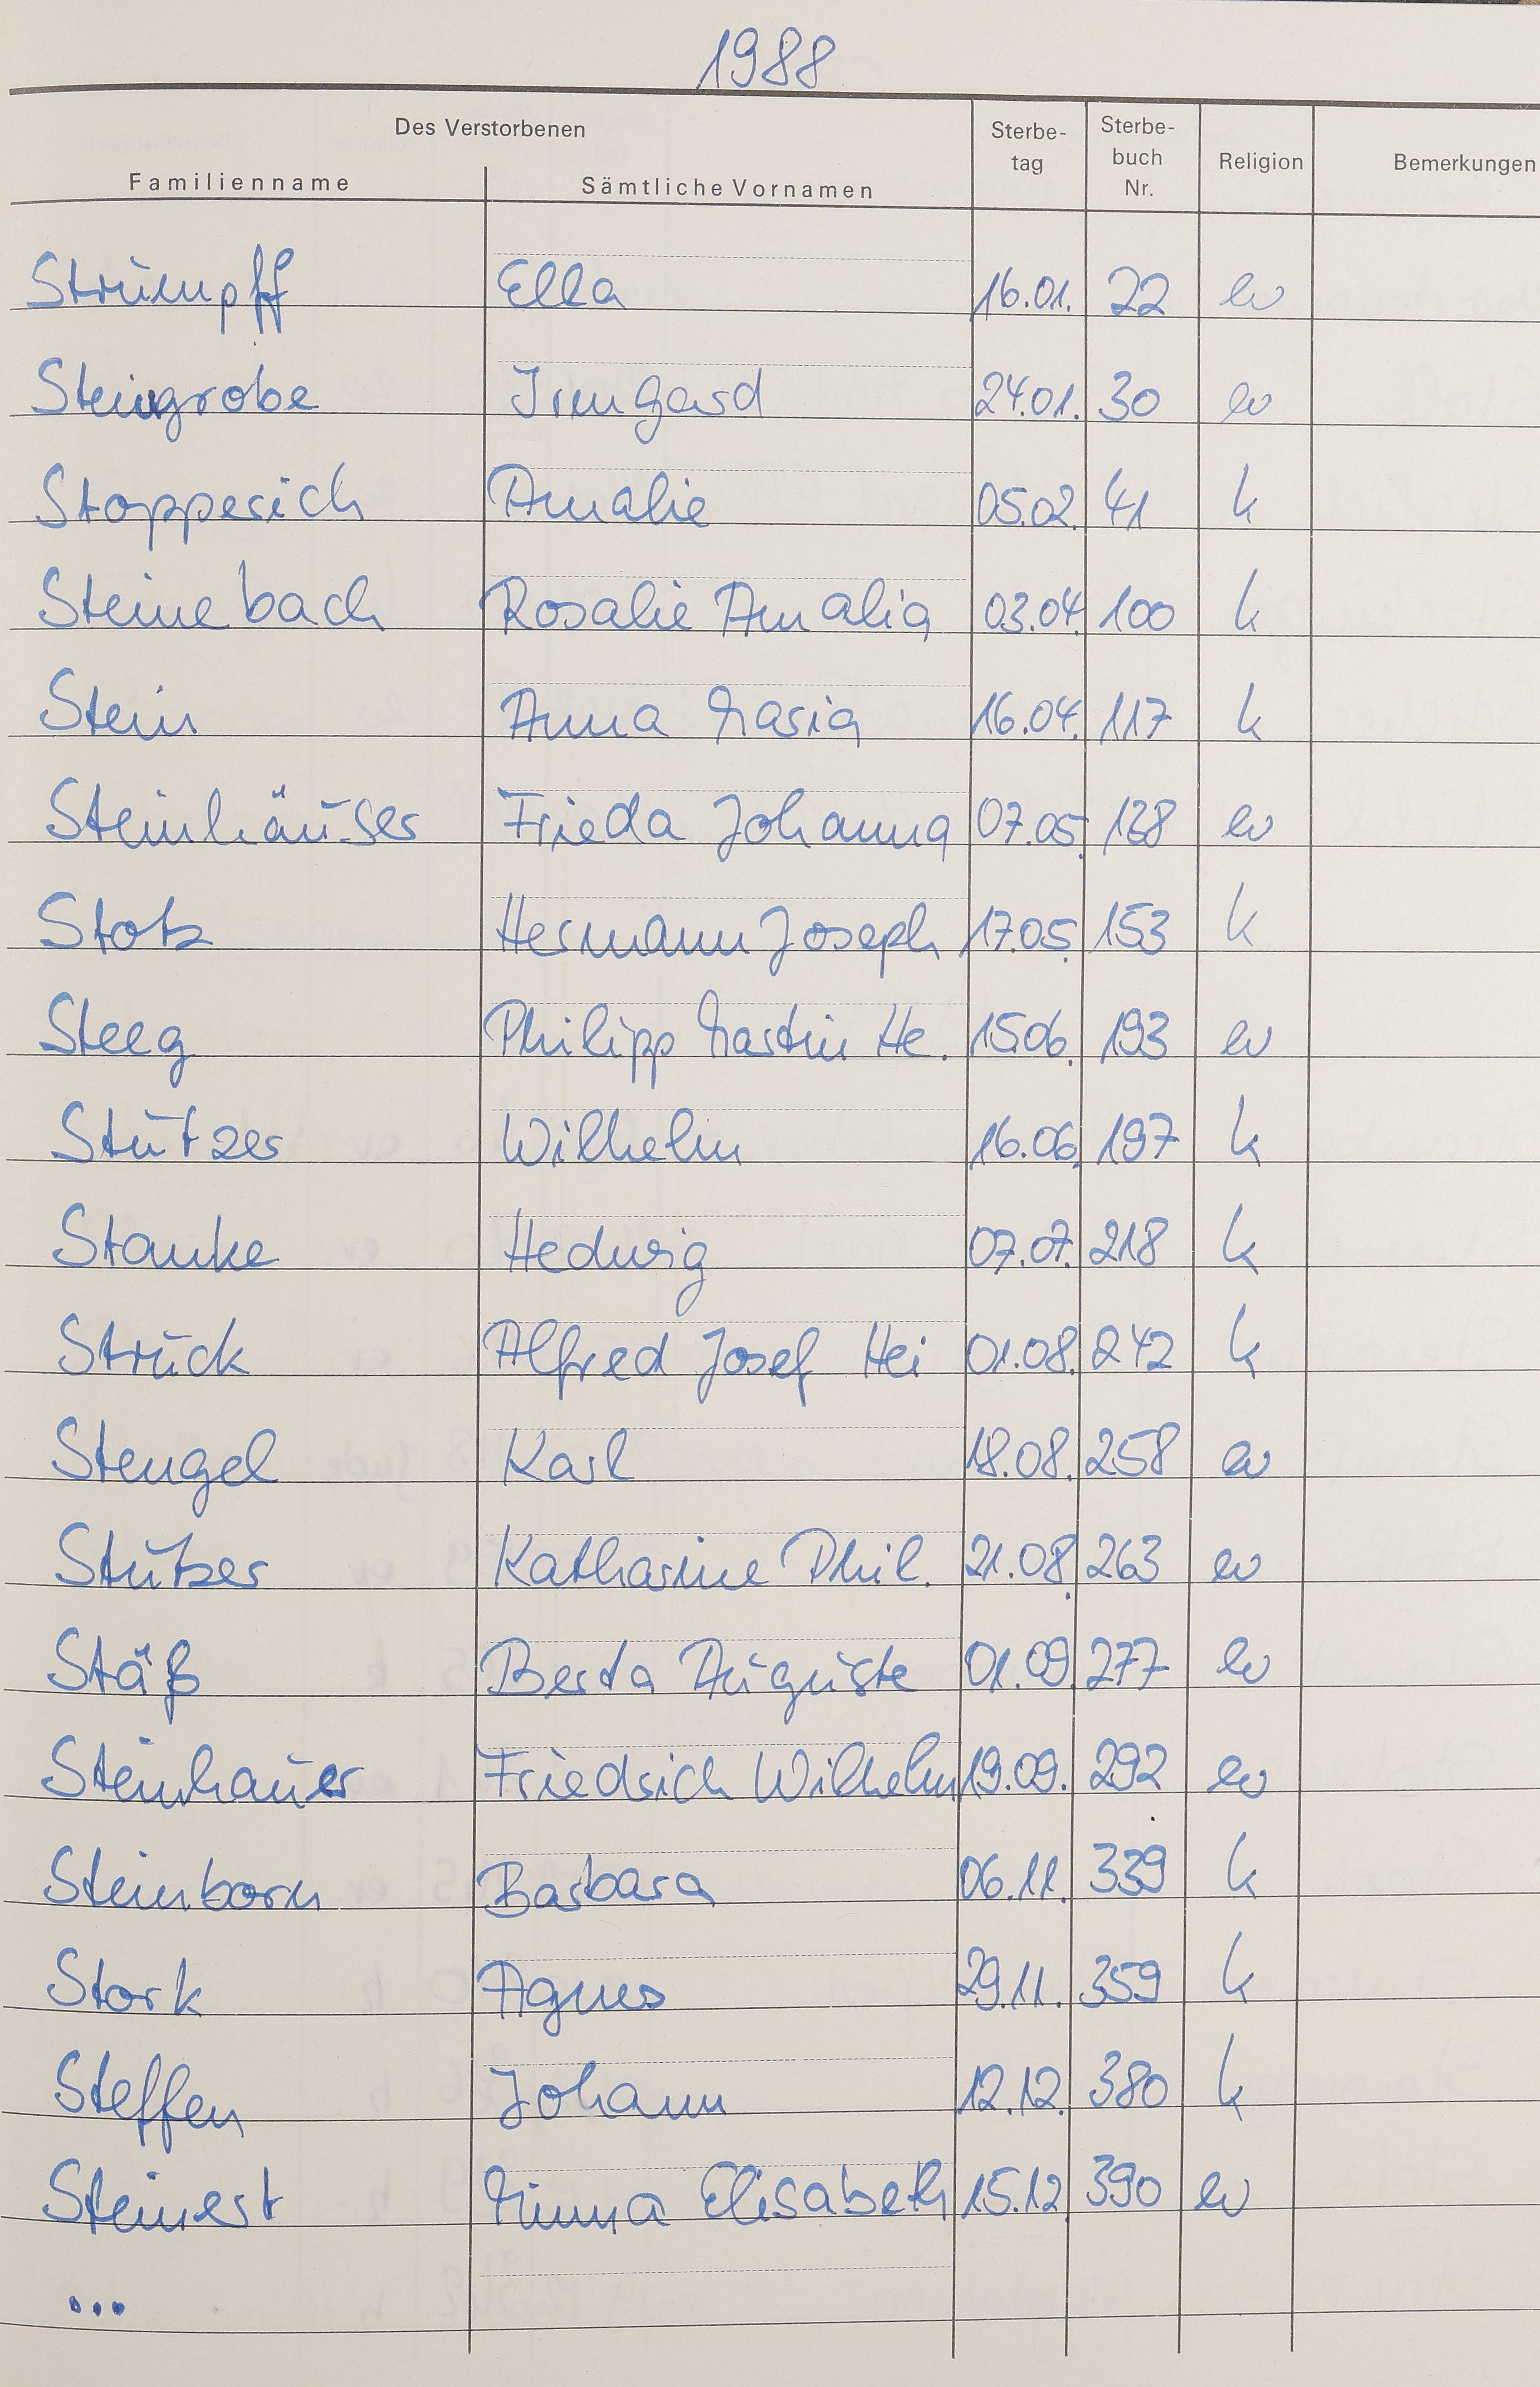 1988
Des Verstorbenen
Familienname Sämtliche Vornamen Sterbe-tag Sterbe-buch Nr. Religion Bemerkungen
Strumpff Ella 16.01. 22 ev
Steingrobe Irmgard 24.01. 30 ev
Stopperich Amalie 05.02. 41 k
Steinebach Rosalie Amalia 03.04. 100 k
Stein Anna Maria 16.04. 117 k
Steinhäuser Frieda Johanna 07.05. 138 ev
Stotz Hermann Joseph 17.05. 153 k
Steeg Philipp Martin He. 15.06. 193 ev
Stutzer Wilhelm 16.06. 197 k
Stanke Hedwig 07.07. 218 k
Struck Alfred Josef Hei 01.08. 242 k
Stengel Karl 18.08. 258 ev
Stutzer Katharine Phil. 21.08. 263 ev
Stäß Berta Auguste 01.09. 277 ev
Steinhauer Friedrich Wilhelm 19.09. 292 ev
Steinborn Barbara 06.11. 339 k
Stork Agnes 29.11. 359 k
Steffen Johann 12.12. 380 k
Steinert Minna Elisabeth 15.12. 390 ev
...